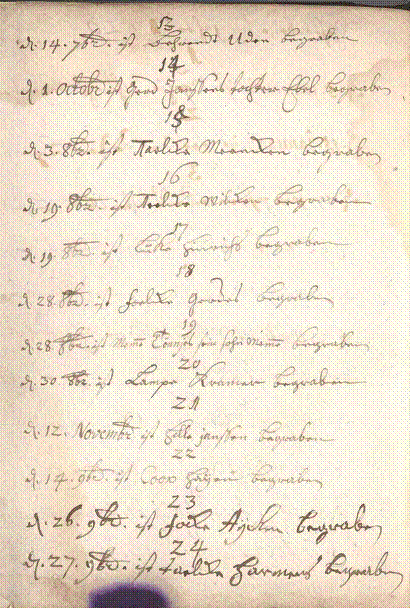 13
d. 14. 7br. ist Behrendt Uden begraben
14
d. 1. Octobr ist Gerd Janssens tochter Ebel begraben
15
d. 3. 8br. ist Taelke Meenken begraben
16
d. 19. 8br. ist Taelke Wilken begraben
17
d. 19. 8br. ist Hinrichs begraben
18
d. 28. 8br. ist Foelke Gerdes begraben
19
d. 28 8br. ist Meme sein sohn Meme begraben
20
d. 30. 8br. ist Lampe Kramer begraben
21
d. 12. Novembr ist Hille janssen begraben
22
d. 14. 9br. ist Coop begraben
23
d. 26. 9br. ist Focke Aycken begraben
24
d. 27. 9br. ist taelke Harmens begraben